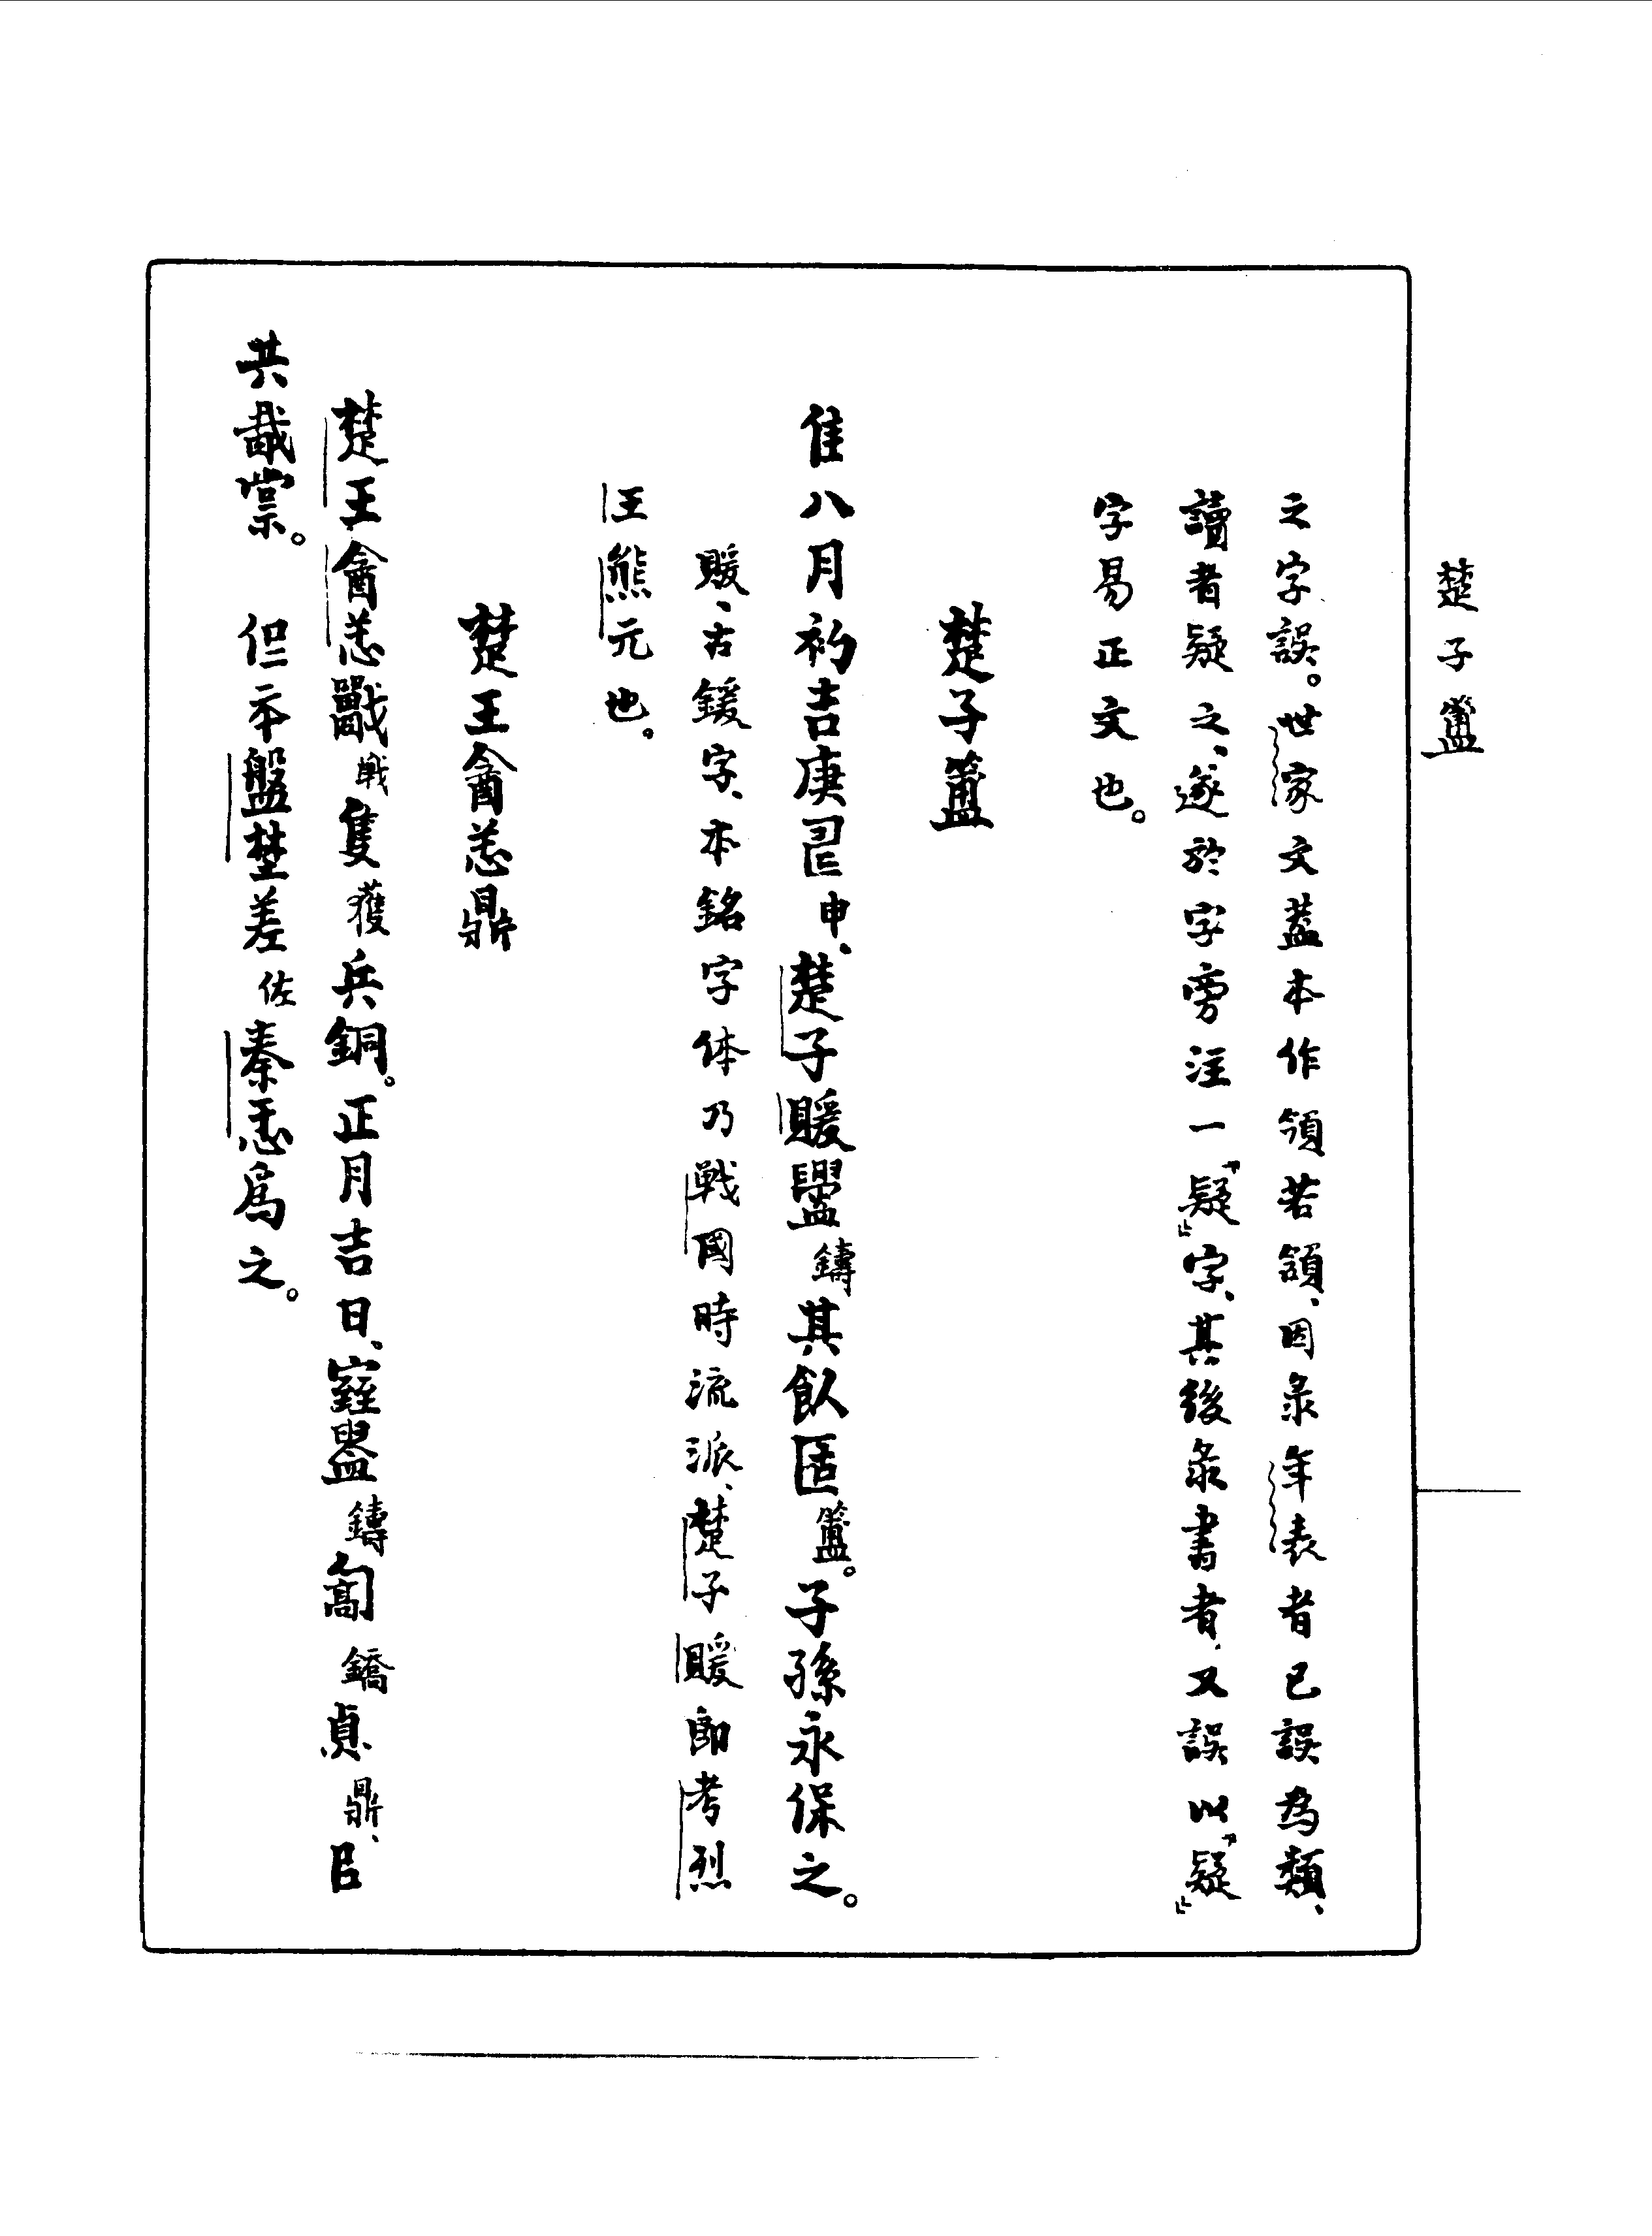 楚子簠
之字誤。世家文蓋本作頜若頟、因彔年表者已誤為類、
讀者疑之、遂於字旁注一「疑」字、其後彔書者、又誤以「疑」
字易正文也。
楚子簠
隹八月初吉庚申、楚子賹鑄其飤匿簠。子孫永保之。
賹、古鍰字、本銘字体乃戰國時流派、楚子賹即考烈
王熊元也。
楚王酓忎鼎
楚王酓忎戰隻獲兵銅。正月吉日、窒鑄鐈貞鼎、㠯
共胾棠。 但盤埜差佐秦忎爲之。